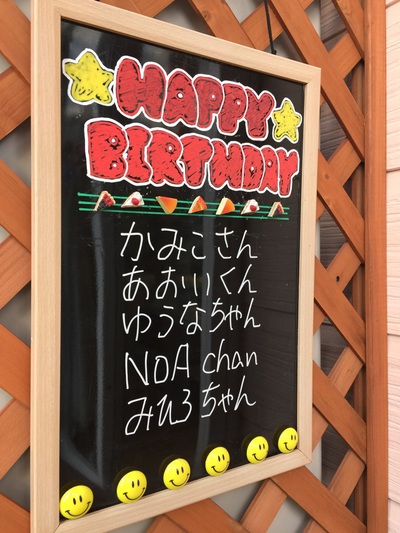 HAPPY
BIRTHDAY
かみこさん
あおいくん
ゆうなちゃん
NoA chan
みひろちゃん